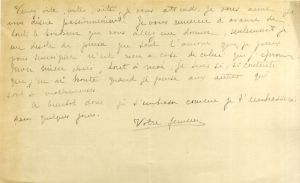 Venez vite, vite, je vous attends, je vous aime
Je vous remercie d'avance de
tout le bonheur que vous allez me donner, seulement je
me désole de penser que tout l'amour que je pourrai
vous donner n'est rien à côté de celui que j'éprouve
tout à moi, je suis si contente
que j'en ai honte quand je pense aux autres qui
sont si malheureux.
A bientôt donc je t'embrasse comme je t'embrasserai
dans quelques jours.
Votre femme